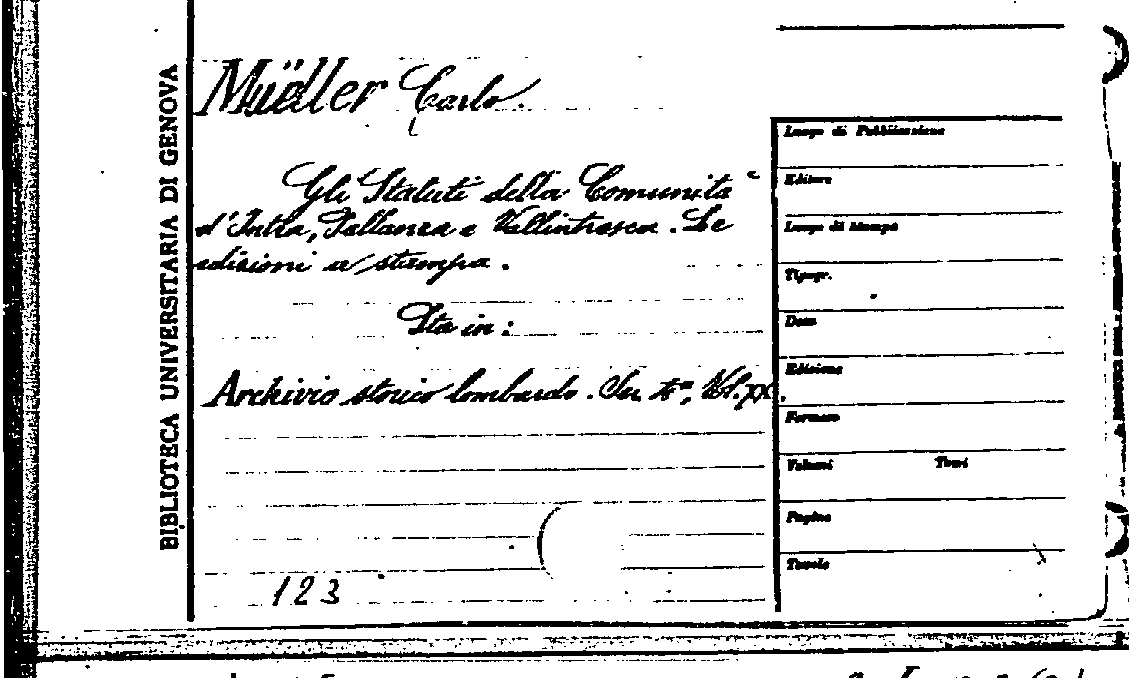 BIBLIOTECA UNIVERSITARIA DI GENOVA
Müller Carlo.
Gli Statuti della Comunità
d'Intra, Pallanza e Vallintrasca. Le
edizioni a stampa.
Sta in:
Archivio storico lombardo. Ser. 4ª, Vol. XX.
123
Luogo di Pubblicazione
Editore
Luogo di Stampa
Tipogr.
Data
Edizione
Formato
Volumi Tomi
Pagine
Tavole